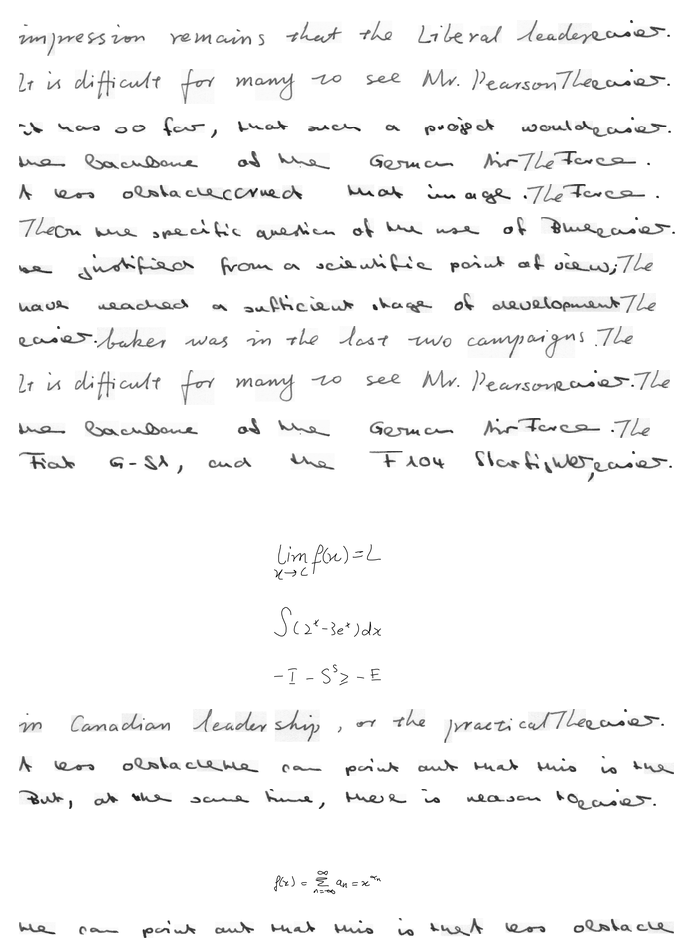 impression remains that the Liberal leader easier.
It is difficult for many to see Mr. Pearson The easier.
it has so far, that such a project would easier.
the backbone of the German Air The Force.
A less obstacle ccrued that image. The Force.
The on the specific question of the use of Blue easier.
be justified from a scientific point of view; The
have reached a sufficient stage of development The
easier. baker was in the last two campaigns. The
It is difficult for many to see Mr. Pearson easier. The
the backbone of the German Air Force. The
Fiat G-91, and the F104 Starfighter, easier.
\lim_{x \to c} f(x) = L
\int (2^x - 3e^x) dx
-I - S^s \geq -E
in Canadian leadership, or the practical The easier.
A less obstacle We can point out that this is the
But, at the same time, there is reason to easier.
f(x) = \sum_{n=-\infty}^{\infty} a_n = x^{r_n}
We can point out that this is that less obstacle